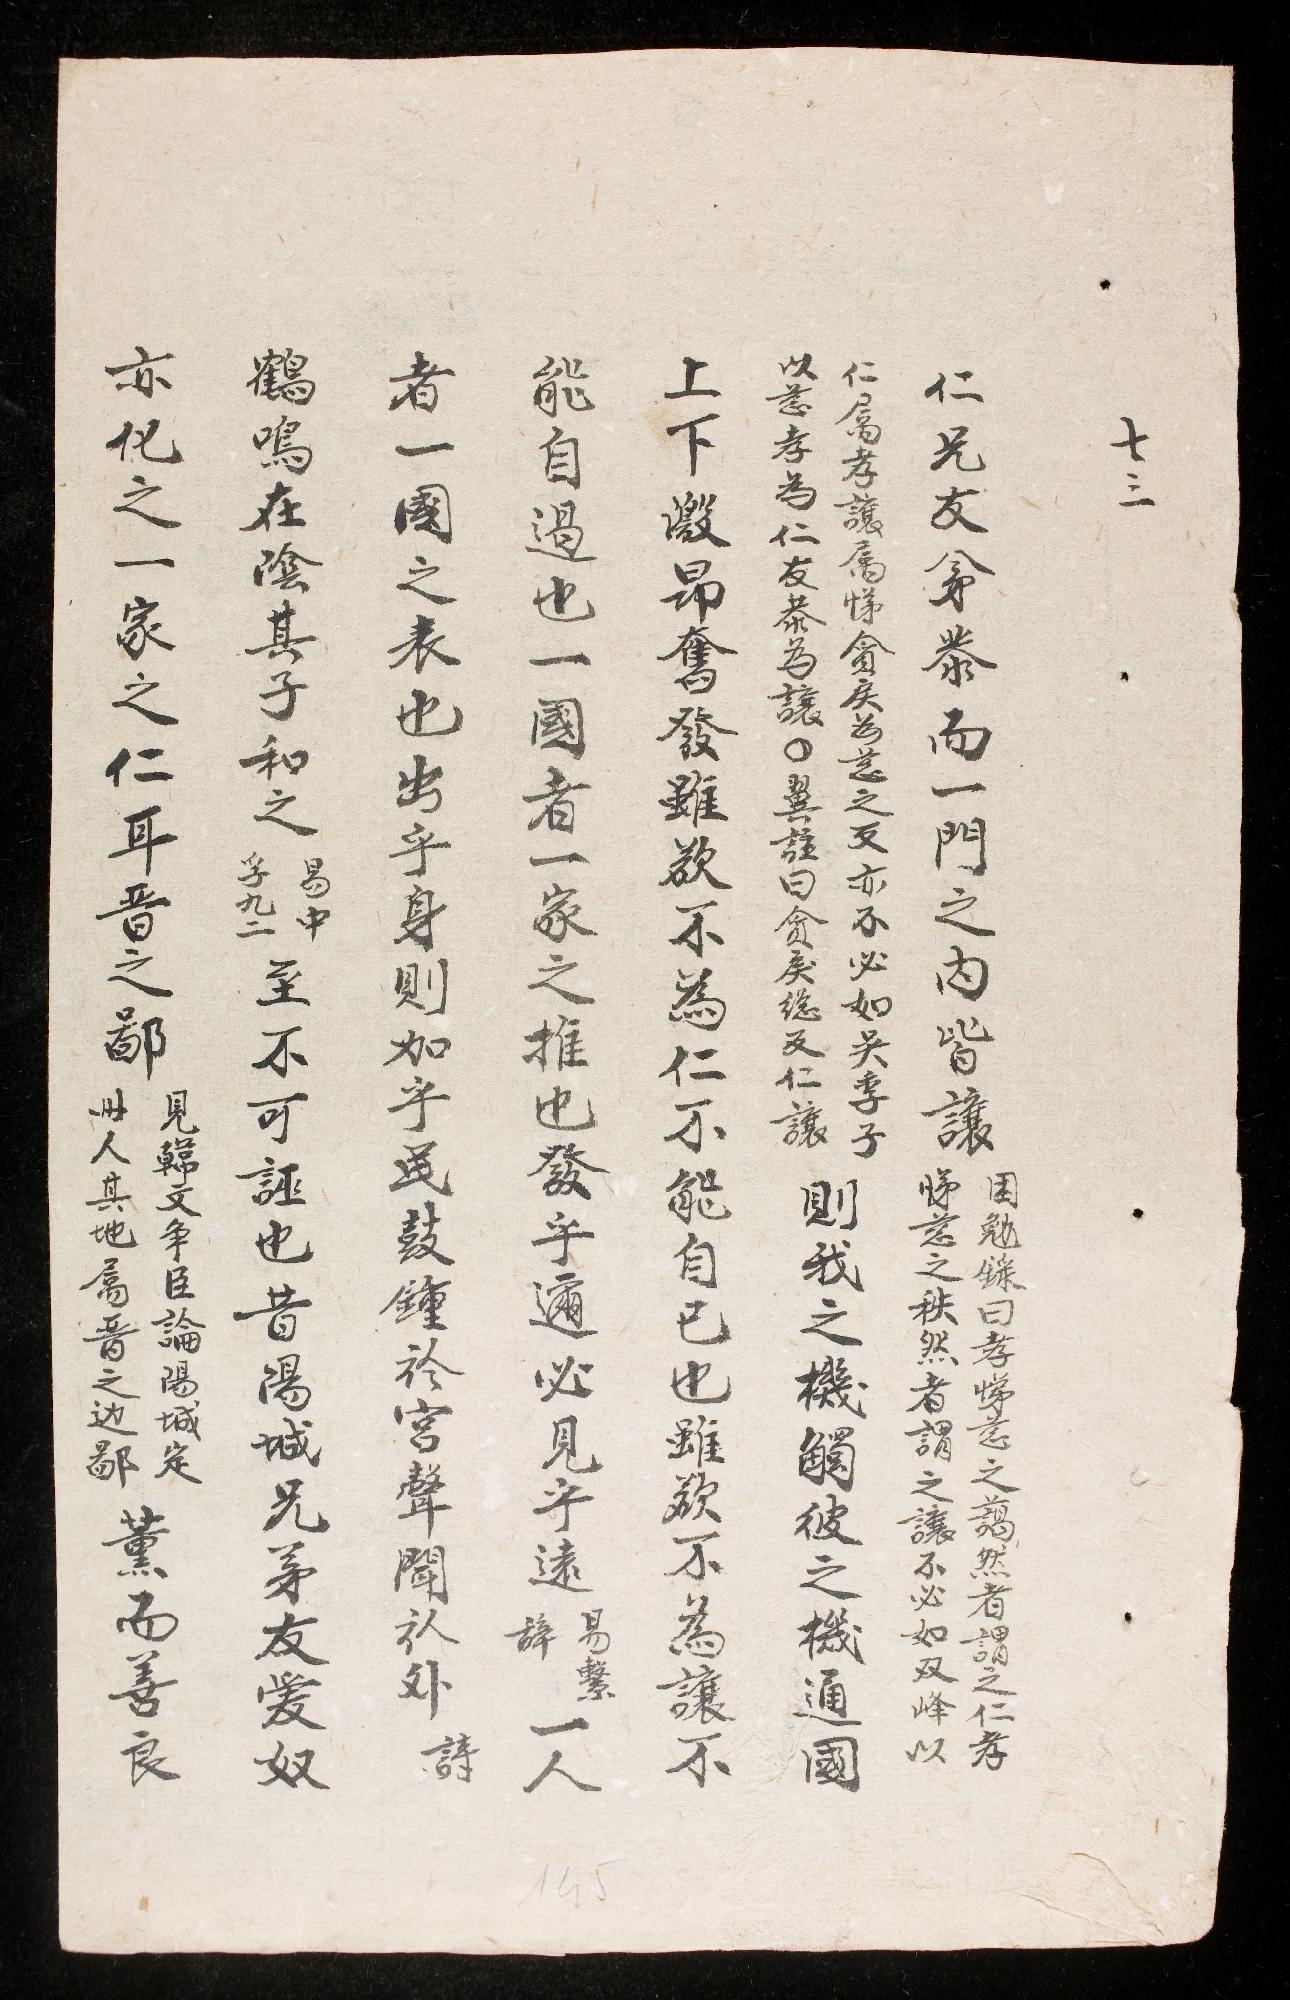 七三
仁兄友弟恭而一門之内皆讓 困勉録曰孝悌慈之藹然者謂之仁孝
悌慈之秩然者謂之讓不必如双峰以
仁属孝讓属悌貪戾為慈之反亦不必如吴季子
以慈孝為仁友恭為讓〇翼註曰貪戾総反仁讓 則我之機觸彼之機通國
上下激昂奮發雖欲不為仁不能自已也雖欲不為讓不
能自過也一國者一家之推也發乎邇必見乎遠 易繫
辞 一人
者一國之表也出乎身則加乎民鼓鍾於宮聲聞於外 詩
鶴鳴在陰其子和之 易中
孚九二 至不可誣也昔陽城兄弟友愛奴
亦化之一家之仁耳晋之鄙 見韓文争臣論陽城定
州人其地属晋之边鄙 薰而善良
145